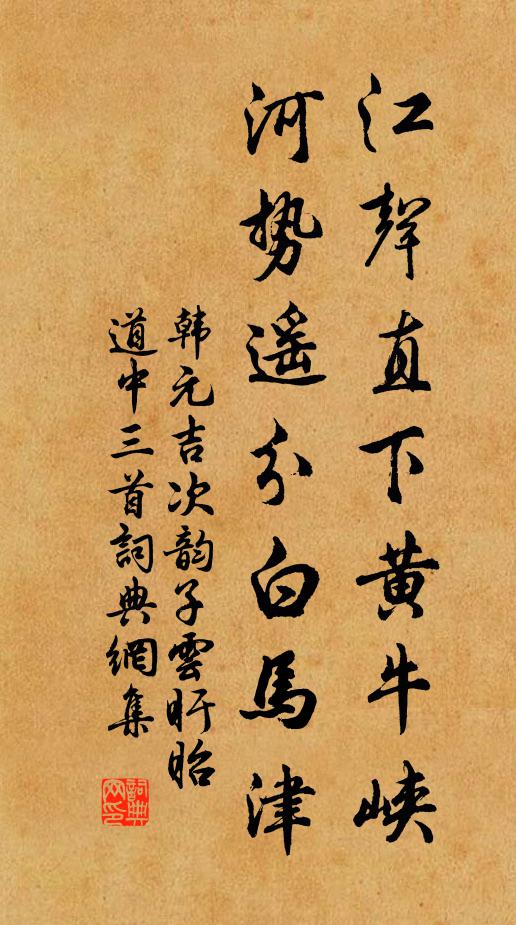 江聲直下黄牛峡
河势遥分白馬津
韩元吉次韵子雲盱眙
道中三首詞典網集
詞典
网印